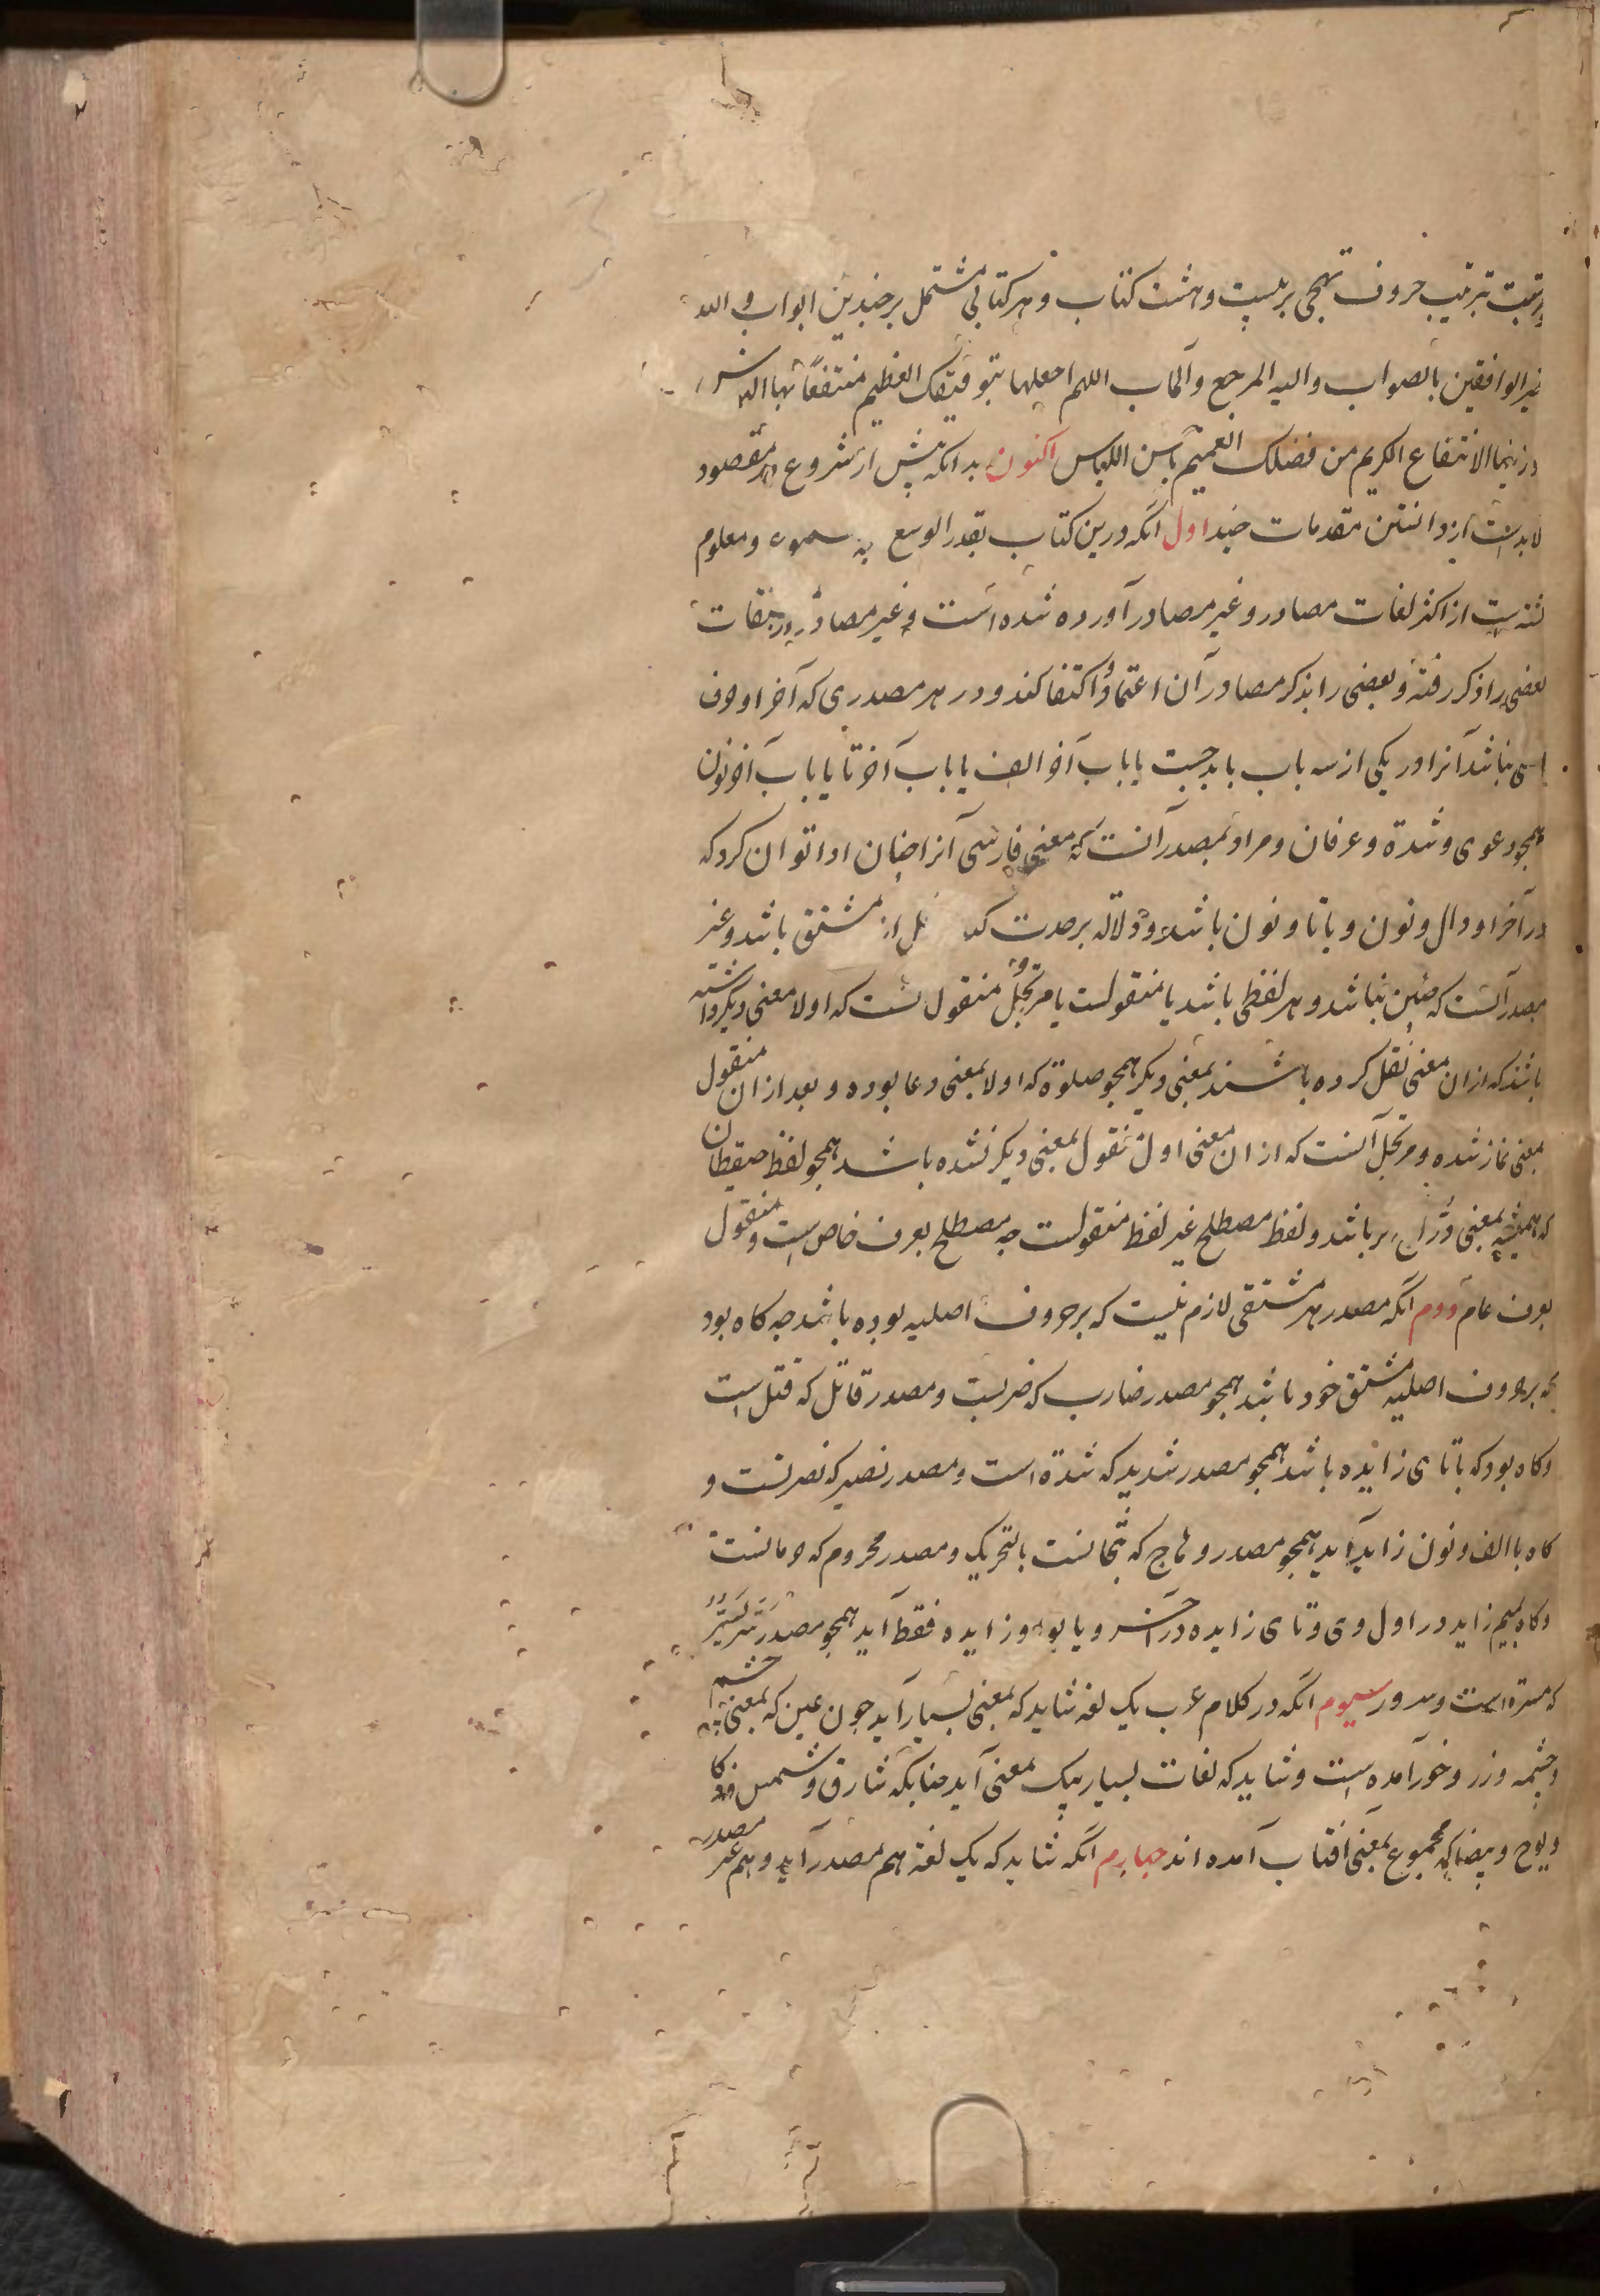 ترتیب حروف تهجی بر بیست و هشت کتاب و هر کتابی مشتمل بر چندین ابواب و الله
خیر الوافقین بالصواب و الیه المرجع و المآب اللهم اجعلها بتوفیقک العظیم منتفعا بها الناس
الانتفاع الکریم من فضلک العمیم اکنون بدانکه پیش از شروع در مقصود
لابدست از دانستن مقدمات چند اول آنکه درین کتاب بقدر الوسع و معلوم
از اکثر لغات مصادر و غیر مصادر آورده شده است و غیر مصادر
بعضی را ذکر رفته و بعضی را بذکر مصادر آن اعتماد و اکتفا کند و در هر مصدری که آخر او حرف
اصلی نباشد آنرا در یکی از سه باب باید جست یا باب آخر الف یا باب آخر تا یا باب آخر نون
همچو دعوی و شدة و عرفان و مراد بمصدر آنست که معنی فارسی آنرا چنان ادا توان کرد که
در آخر او دال و نون و یا تا و نون باشد و دلالة بر حدث کند از مشتق باشد و غیر
مصدر آنست که چنین نباشد و هر لفظی باشد یا منقولست یا مرتجل و منقول آنست که اولا معنی دیگر داشته
باشد که ازان معنی نقل کرده باشند بمعنی دیگر همچو صلوة که اولا بمعنی دعا بوده و بعد ازان منقول
بمعنی نماز شده و مرتجل آنست که ازان معنی اول منقول بمعنی دیگر نشده باشد همچو لفظ حیقطان
که همیشه بمعنی درّاج نر باشد و لفظ مصطلح غیر لفظ منقولست چه مصطلح بعرف خاص است و منقول
بعرف عام دوم آنکه مصدر هر مشتقی لازم نیست که بر حروف اصلیه بوده باشد چه کاه بود
که بر حروف اصلیه مشتق خود باشد همچو مصدر ضارب که ضربست و مصدر قاتل که قتل است
و کاه بود که با تای زایده باشد همچو مصدر شدید که شدة است و مصدر نصیر که نصرتست و
کاه با الف و نون زاید آید همچو مصدر که بالتحریک و مصدر محروم که حرمانست
و کاه بمیم زاید در اول وی و تای زایده در آخر و یا بواو زایده فقط آید همچو مصدر
که مسرة است و سرور سیوم آنکه در کلام عرب یک لغة شاید که بمعنی بسیار آید چون عین که بمعنی چشم
و چشمه و زر و خور آمده است و شاید که لغات بسیار بیک معنی آید چنانکه شارق و شمس و ذکا
و یوح و بیضا که مجموع بمعنی آفتاب آمده اند چهارم آنکه شاید که یک لغة هم مصدر آید و هم غیر مصدر